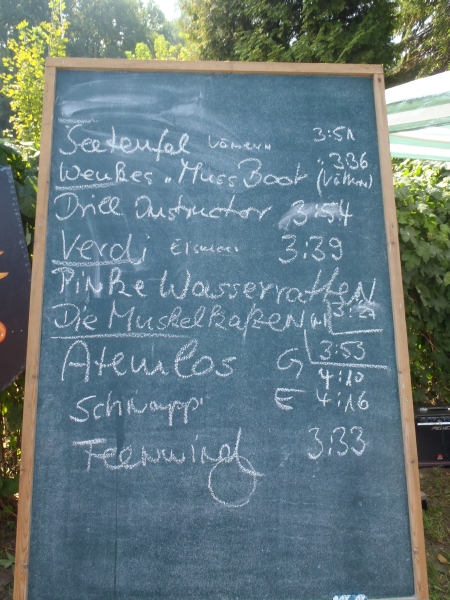 Seeteufel Vömern 3:51
Weußes "Muss Boot 3:36
Drill Instructor 3:54
Verdi 3:39
Pinke Wasserratten
Die Muskelkatzen
Atemlos G 3:53
4:10
Schnapp E 4:16
Feenwind 3:33